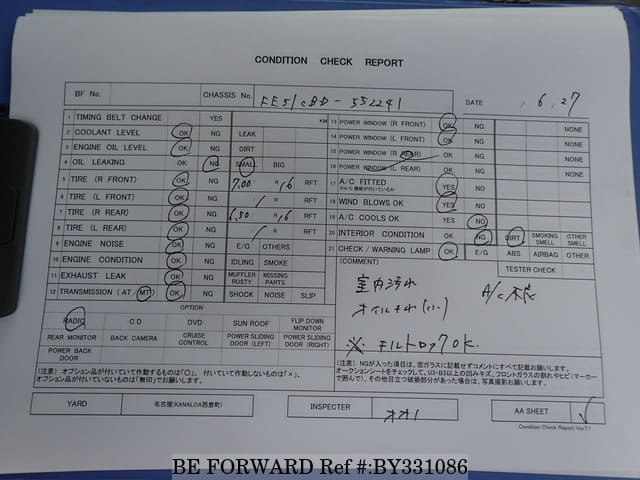 CONDITION CHECK REPORT
BF No. CHASSIS No. FE51CBD-552241 DATE , 6, 27
1 TIMING BELT CHANGE YES KM
2 COOLANT LEVEL OK NG LEAK
3 ENGINE OIL LEVEL OK NG DIRT
4 OIL LEAKING OK NG SMALL BIG
5 TIRE (R FRONT) OK NG 7.00 / R 16 RFT
6 TIRE (L FRONT) OK NG / R RFT
7 TIRE (R REAR) OK NG 6.50 / R 16 RFT
8 TIRE (L REAR) OK NG / R RFT
9 ENGINE NOISE OK NG E/G OTHERS
10 ENGINE CONDITION OK NG IDLING SMOKE
11 EXHAUST LEAK OK NG MUFFLER RUSTY MISSING PARTS
12 TRANSMISSION (AT / MT) OK NG SHOCK NOISE SLIP
OPTION
RADIO CD DVD SUN ROOF FLIP DOWN MONITOR
REAR MONITOR BACK CAMERA CRUISE CONTROL POWER SLIDING DOOR (LEFT) POWER SLIDING DOOR (RIGHT)
POWER BACK DOOR
(注意) オプション品が付いていて作動するものは「○」、付いていて作動しないものは「×」、
オプション品が付いていないものは「無印」でお願いします。
13 POWER WINDOW (R FRONT) OK NG NONE
14 POWER WINDOW (L FRONT) OK NG NONE
15 POWER WINDOW (R REAR) OK NG NONE
16 POWER WINDOW (L REAR) OK NG NONE
17 A/C FITTED YES NG
18 WIND BLOWS OK YES NG
19 A/C COOLS OK YES NO
20 INTERIOR CONDITION OK NG DIRT SMOKING SMELL OTHER SMELL
21 CHECK / WARNING LAMP OK E/G ABS AIRBAG OTHER
(COMMENT) TESTER CHECK
室内汚れ A/C不良
オイルもれ(小)
※ チルトロックOK.
(注意) NGが入った項目は、窓ガラスに記載せずコメントにすべて記載お願いします。
オークションシートをチェックして、U3・B3以上の凹みキズ、フロントガラスの割れやヒビ(マーカー
で囲んで)、その他目立つ破損部分があった場合は、写真撮影お願いします。
YARD 名古屋(KANALOA西倉町) INSPECTER オオノ AA SHEET ✓
Condition Check Report Ver7.1
BE FORWARD Ref #:BY331086